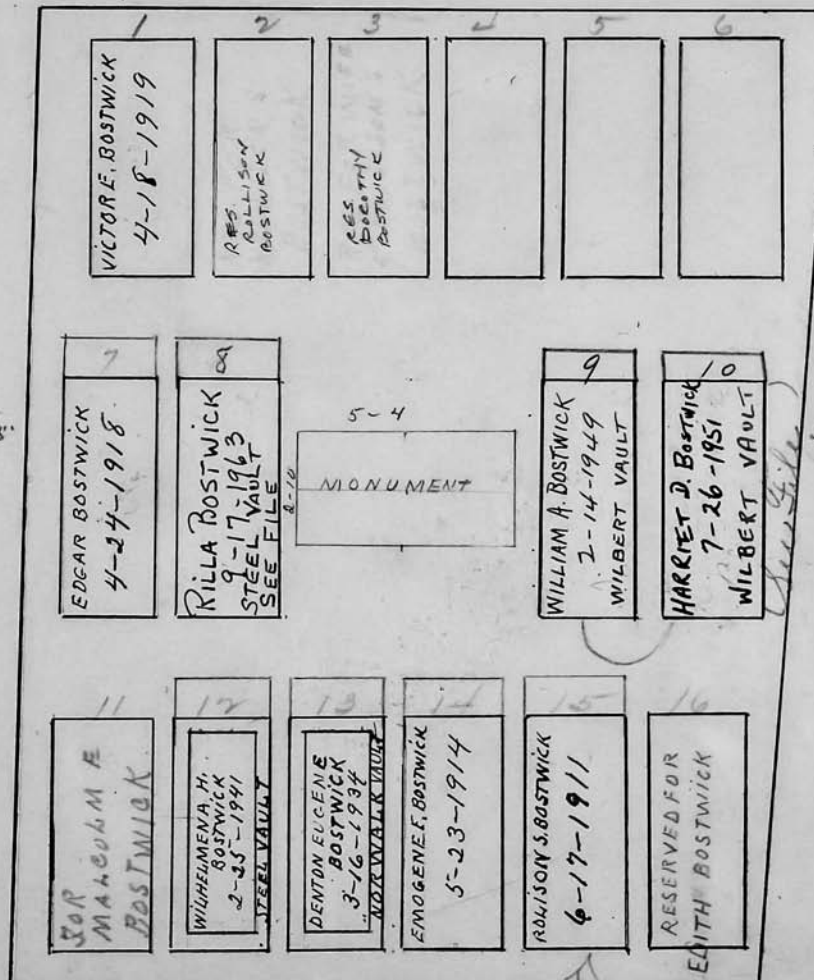 1
2
3
4
5
6
VICTOR E. BOSTWICK
4-18-1919
RES.
ROLLISON
BOSTWICK
RES.
DOROTHY
BOSTWICK
7
8
9
10
EDGAR BOSTWICK
4-24-1918
RILLA BOSTWICK
9-17-1963
STEEL VAULT
SEE FILE
5-4
2-10
MONUMENT
WILLIAM A. BOSTWICK
2-14-1949
WILBERT VAULT
HARRIET D. BOSTWICK
7-26-1951
WILBERT VAULT
(See File)
11
12
13
14
15
16
FOR
MALCOLM E
BOSTWICK
WILHELMENA, H,
BOSTWICK
2-25-1941
STEEL VAULT
DENTON EUGENE
BOSTWICK
3-16-1934
NORWALK VAULT
EMOGENE F. BOSTWICK
5-23-1914
ROLISON S. BOSTWICK
6-17-1911
RESERVED FOR
EDITH BOSTWICK